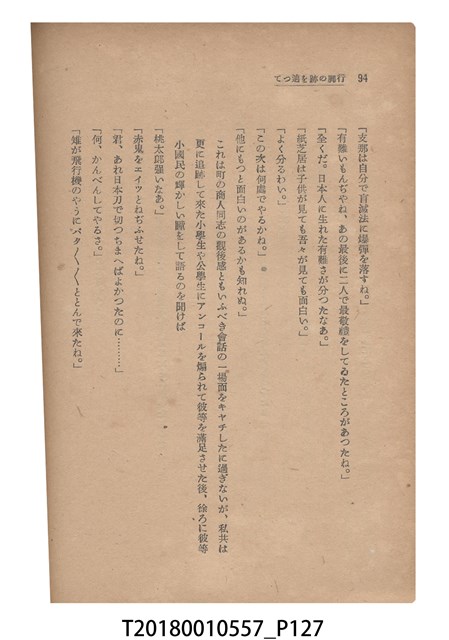 行興の跡を追つて
94
「支那は自分で盲滅法に爆彈を落すね。」
「有難いもんぢやね、あの最後に二人で最敬禮をしてゐたところがあつたね。」
「全くだ。日本人に生れた有難さが分つたなあ。」
「紙芝居は子供が見ても吾々が見ても面白い。」
「よく分るわい。」
「この次は何處でやるかね。」
「他にもつと面白いのがあるかも知れぬ。」
これは町の商人同志の觀後感ともいふべき會話の一場面をキヤチしたに過ぎないが、私共は
更に追跡して來た小學生や公學生にアンコールを煽られて彼等を滿足させた後、徐ろに彼等
小國民の輝かしい瞳をして語るのを聞けば
「桃太郎强いなあ。」
「赤鬼をエイツとねぢふせたね。」
「君、あれ日本刀で切つちまへばよかつたのに………」
「何、かんべんしてやるさ。」
「雉が飛行機のやうにパタ〱〱ととんで來たね。」
T20180010557_P127